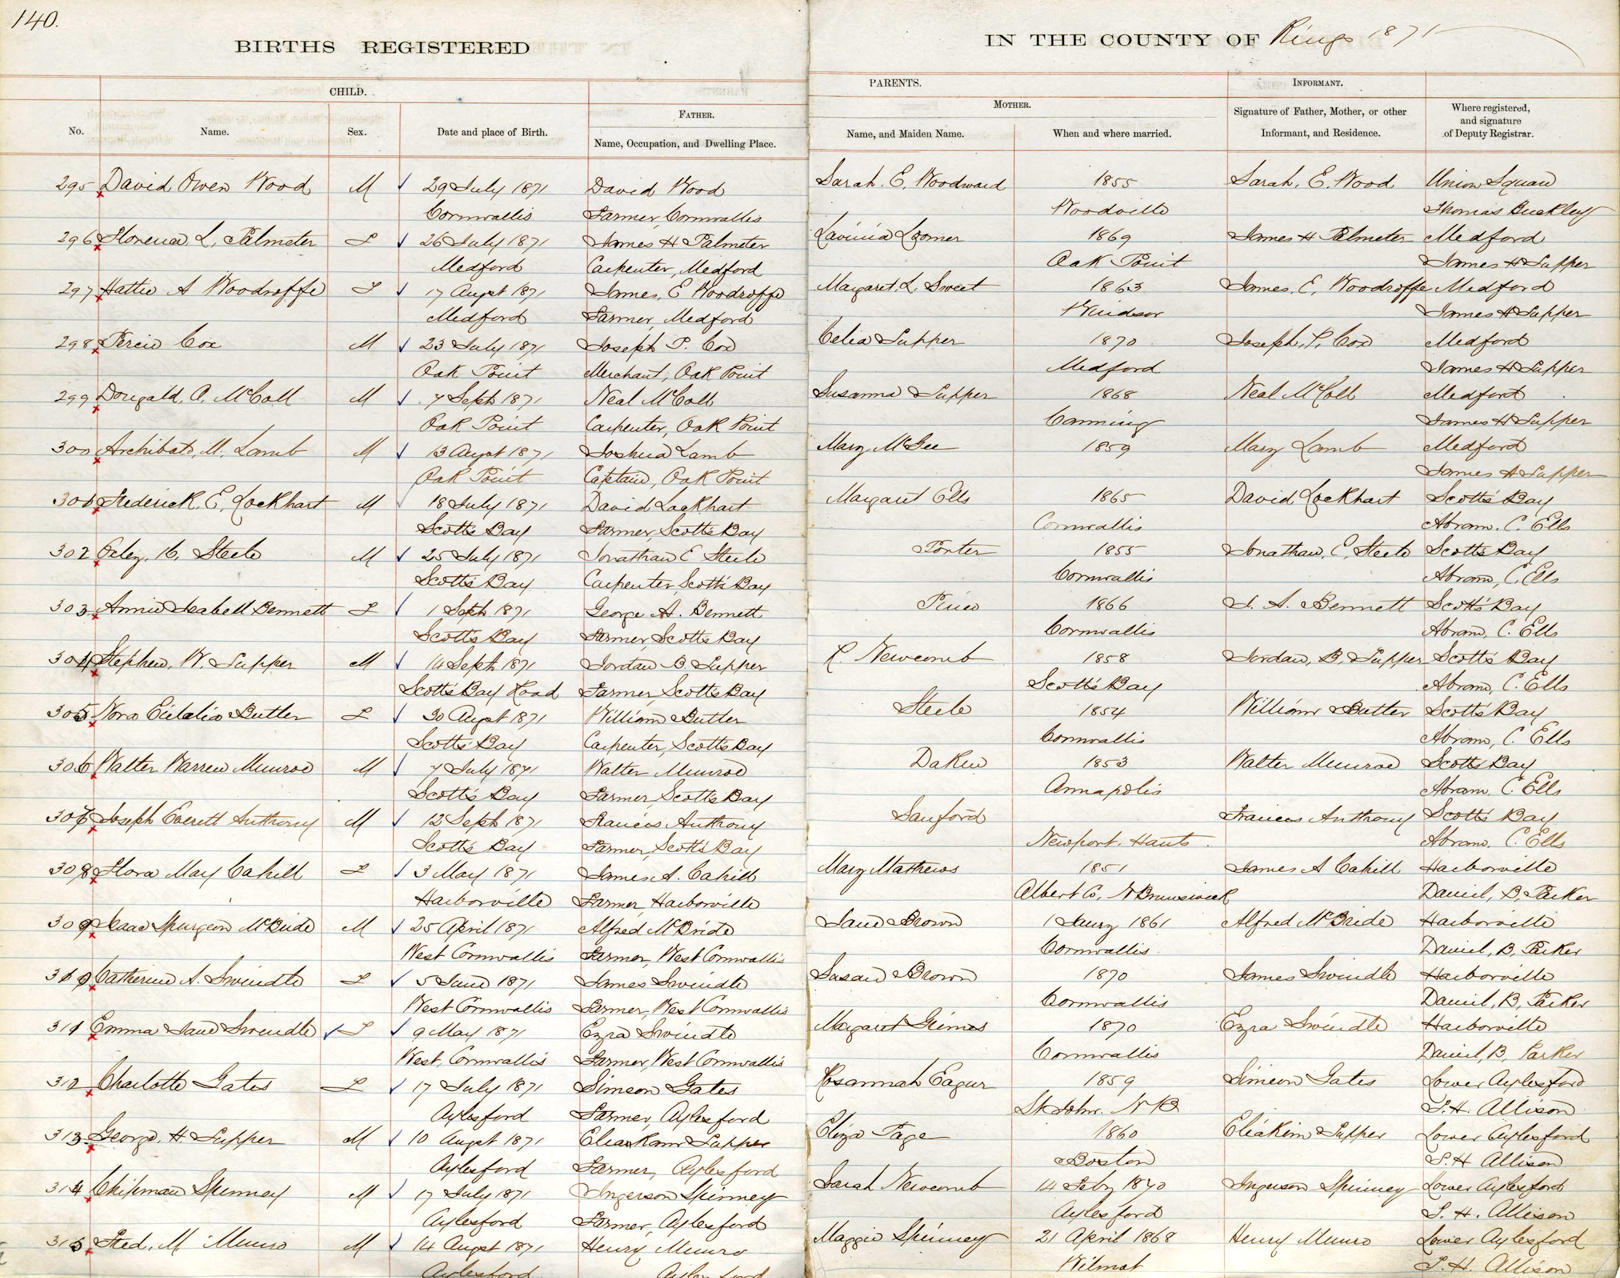 140.
BIRTHS REGISTERED
IN THE COUNTY OF Kings 1871
CHILD.
PARENTS.
INFORMANT.
FATHER.
MOTHER.
No.
Name.
Sex.
Date and place of Birth.
Name, Occupation, and Dwelling Place.
Name, and Maiden Name.
When and where married.
Signature of Father, Mother, or other
Informant, and Residence.
Where registered,
and signature
of Deputy Registrar.
295 David Owen Wood M 29 July 1871 David Wood Sarah. E. Woodward 1855 Sarah. E. Wood Union Square
Cornwallis Farmer, Cornwallis Woodville Thomas Buckley
296 Florence L. Palmeter F 26 July 1871 James H Palmeter Lavinia Loomer 1869 James H Palmeter Medford
Medford Carpenter, Medford Oak Point James H Tupper
297 Hattie A Woodroffe F 17 Augst 1871 James, E Woodroffe Margaret. L. Sweet 1863 James. E. Woodroffe Medford
Medford Farmer, Medford Windsor James H Tupper
298 Cox M 23 July 1871 Joseph P. Cox Celia Tupper 1870 Joseph, P. Cox Medford
Oak Point Merchant, Oak Point Medford James H Tupper
299 Dougald. A. McColl M 7 Sept 1871 Neal McColl Susanna Tupper 1868 Neal McColl Medford
Oak Point Carpenter, Oak Point Canning James H Tupper
300 Archibald, M. Lamb M 13 Augst 1871 Joshua Lamb Mary McGee 1859 Mary Lamb Medford
Oak Point Captain, Oak Point James H Tupper
301 Frederick, E, Lockhart M 18 July 1871 David Lockhart Margaret Ells 1865 David Lockhart Scotts Bay
Scotts Bay Farmer, Scotts Bay Cornwallis Abram. C. Ells
302 Steele M 25 July 1871 Jonathan E Steele Porter 1855 Jonathan, E, Steele Scotts Bay
Scotts Bay Carpenter, Scotts Bay Cornwallis Abram, C. Ells
303 Annie Isabell Bennett F 1 Sept 1871 George A. Bennett 1866 Bennett Scotts Bay
Scotts Bay Farmer, Scotts Bay Cornwallis Abram, C. Ells
304 Stephen. W. Tupper M 14 Sept 1871 Jordan B Tupper Newcomb 1858 Jordan, B, Tupper Scotts Bay
Scotts Bay Road Farmer, Scotts Bay Scotts Bay Abram, C. Ells
305 Nora Butler F 30 Augst 1871 William Butler Steele 1854 William Butler Scotts Bay
Scotts Bay Carpenter, Scotts Bay Cornwallis Abram, C. Ells
306 Walter Warren Munroe M 7 July 1871 Walter Munroe Dakin 1853 Walter Munroe Scotts Bay
Scotts Bay Farmer, Scotts Bay Annapolis Abram. C. Ells
307 Joseph Everett Anthony M 12 Sept 1871 Francis Anthony Sanford Francis Anthony Scotts Bay
Scotts Bay Farmer, Scotts Bay Newport. Hants. Abram. C. Ells
308 Flora May Cahill F 3 May 1871 James. A. Cahill Mary Mathews 1851 James A Cahill Harborville
Harborville Farmer, Harborville Albert Co, N Brunswick Daniel, B, Parker
309 Isaac Spurgeon McBride M 25 April 1871 Alfred McBride Jane Brown 1 Jany 1861 Alfred McBride Harborville
West Cornwallis Farmer, West Cornwallis Cornwallis Daniel, B, Parker
310 Catherine A. Swindle F 5 June 1871 James Swindle Susan Brown 1870 James Swindle Harborville
West Cornwallis Farmer, West Cornwallis Cornwallis Daniel, B, Parker
311 Emma Jane Swindle F 9 May 1871 Ezra Swindle Margaret Grimes 1870 Ezra Swindle Harborville
West. Cornwallis Farmer, West Cornwallis Cornwallis Daniel, B, Parker
312 Charlotte Gates F 17 July 1871 Simeon Gates Hosannah 1859 Simeon Gates Lower Aylesford
Aylesford Farmer, Aylesford St John. N B T. H. Allison
313 George. H Tupper M 10 Augst 1871 Eliakam Tupper Eliza Page 1860 Eliakim Tupper Lower Aylesford
Aylesford Farmer, Aylesford Boston T. H Allison
314 Chipman Spinney M 17 July 1871 Ingerson Spinney Sarah Newcomb 14 Feby 1870 Ingerson Spinney Lower Aylesford
Aylesford Farmer, Aylesford Aylesford T. H. Allison
315 Fred. M Munro M 14 Augst 1871 Henry Munro Maggie Spinney 21 April 1868 Henry Munro Lower Aylesford
Aylesford Aylesford Wilmot T. H. Allison